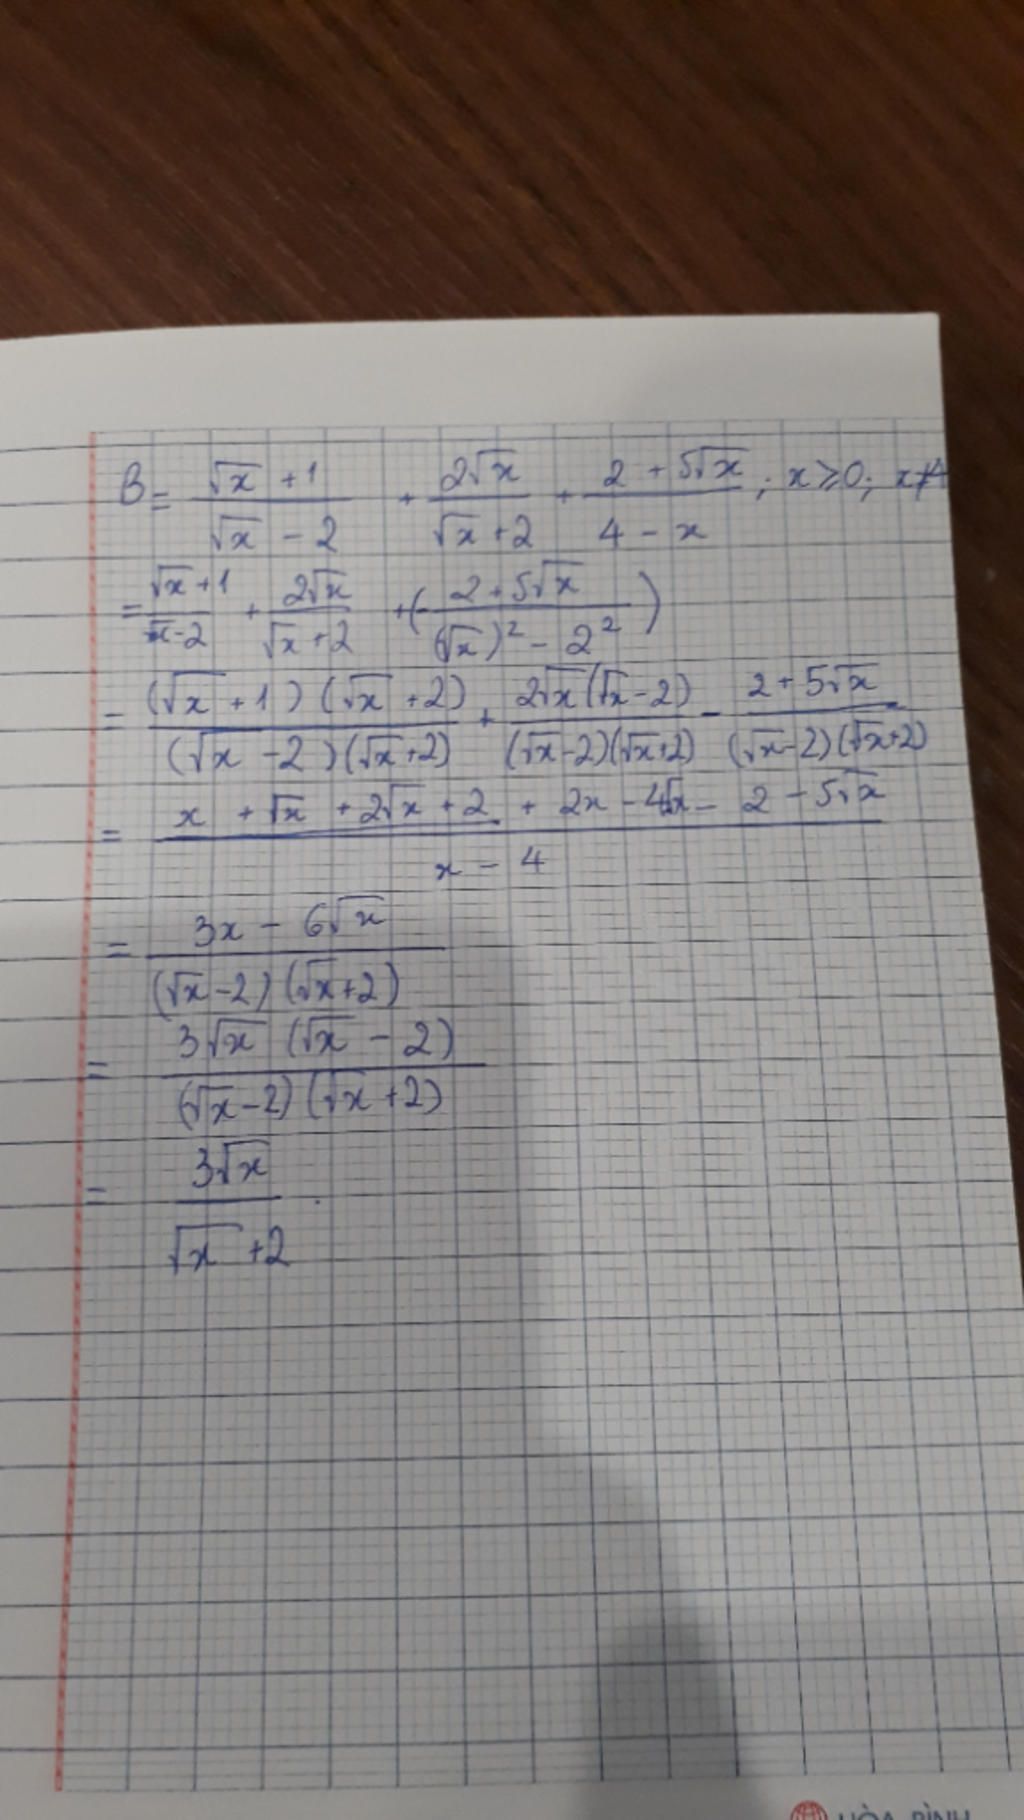 B = (√x + 1)/(√x - 2) + 2√x/(√x + 2) + (2 + 5√x)/(4 - x) ; x ≥ 0; x ≠ 4
= (√x + 1)/(√x - 2) + 2√x/(√x + 2) + (- (2 + 5√x)/((√x)² - 2²))
= (√x + 1)(√x + 2)/((√x - 2)(√x + 2)) + 2√x(√x - 2)/((√x - 2)(√x + 2)) - (2 + 5√x)/((√x - 2)(√x + 2))
= (x + √x + 2√x + 2 + 2x - 4√x - 2 - 5√x)/(x - 4)
= (3x - 6√x)/((√x - 2)(√x + 2))
= 3√x(√x - 2)/((√x - 2)(√x + 2))
= 3√x/(√x + 2).
HÒA BÌNH